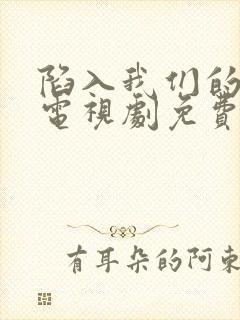 陷入我们的
電視劇免費
有耳朵的阿東